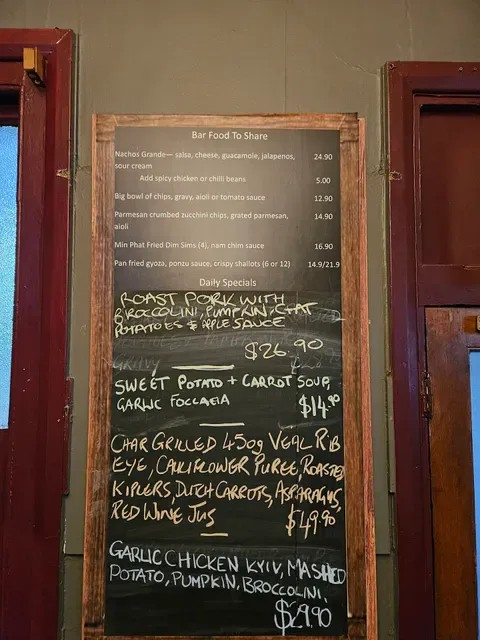 Bar Food To Share
Nachos Grande— salsa, cheese, guacamole, jalapenos, 24.90
sour cream
Add spicy chicken or chilli beans 5.00
Big bowl of chips, gravy, aioli or tomato sauce 12.90
Parmesan crumbed zucchini chips, grated parmesan, 14.90
aioli
Min Phat Fried Dim Sims (4), nam chim sauce 16.90
Pan fried gyoza, ponzu sauce, crispy shallots (6 or 12) 14.9/21.9
Daily Specials
ROAST PORK WITH
BROCCOLINI, PUMPKIN, CHAT
POTATOES & APPLE SAUCE
$26.90
GRAVY
SWEET POTATO + CARROT SOUP,
GARLIC FOCCACIA $14.90
CHAR GRILLED 450g VEAL RIB
EYE, CAULIFLOWER PUREE, ROASTED
KIPLERS, DUTCH CARROTS, ASPARAGUS,
RED WINE JUS $49.90
GARLIC CHICKEN KYIV, MASHED
POTATO, PUMPKIN, BROCCOLINI.
$29.90